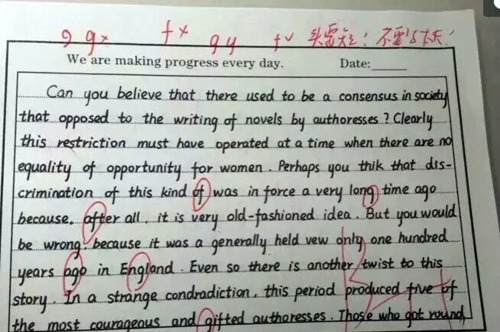 9 9x fx 9 y f✓ 头要短! 不要
We are making progress every day. Date:
Can you believe that there used to be a consensus in society
that opposed to the writing of novels by authoresses? Clearly
this restriction must have operated at a time when there are no
equality of opportunity for women. Perhaps you thik that dis-
crimination of this kind of was in force a very long time ago
because, after all, it is very old-fashioned idea. But you would
be wrong, because it was a generally held vew only one hundred
years ago in England. Even so there is another twist to this
story. In a strange condradiction, this period produced five of
the most courageous and gifted authoresses. Those who got round